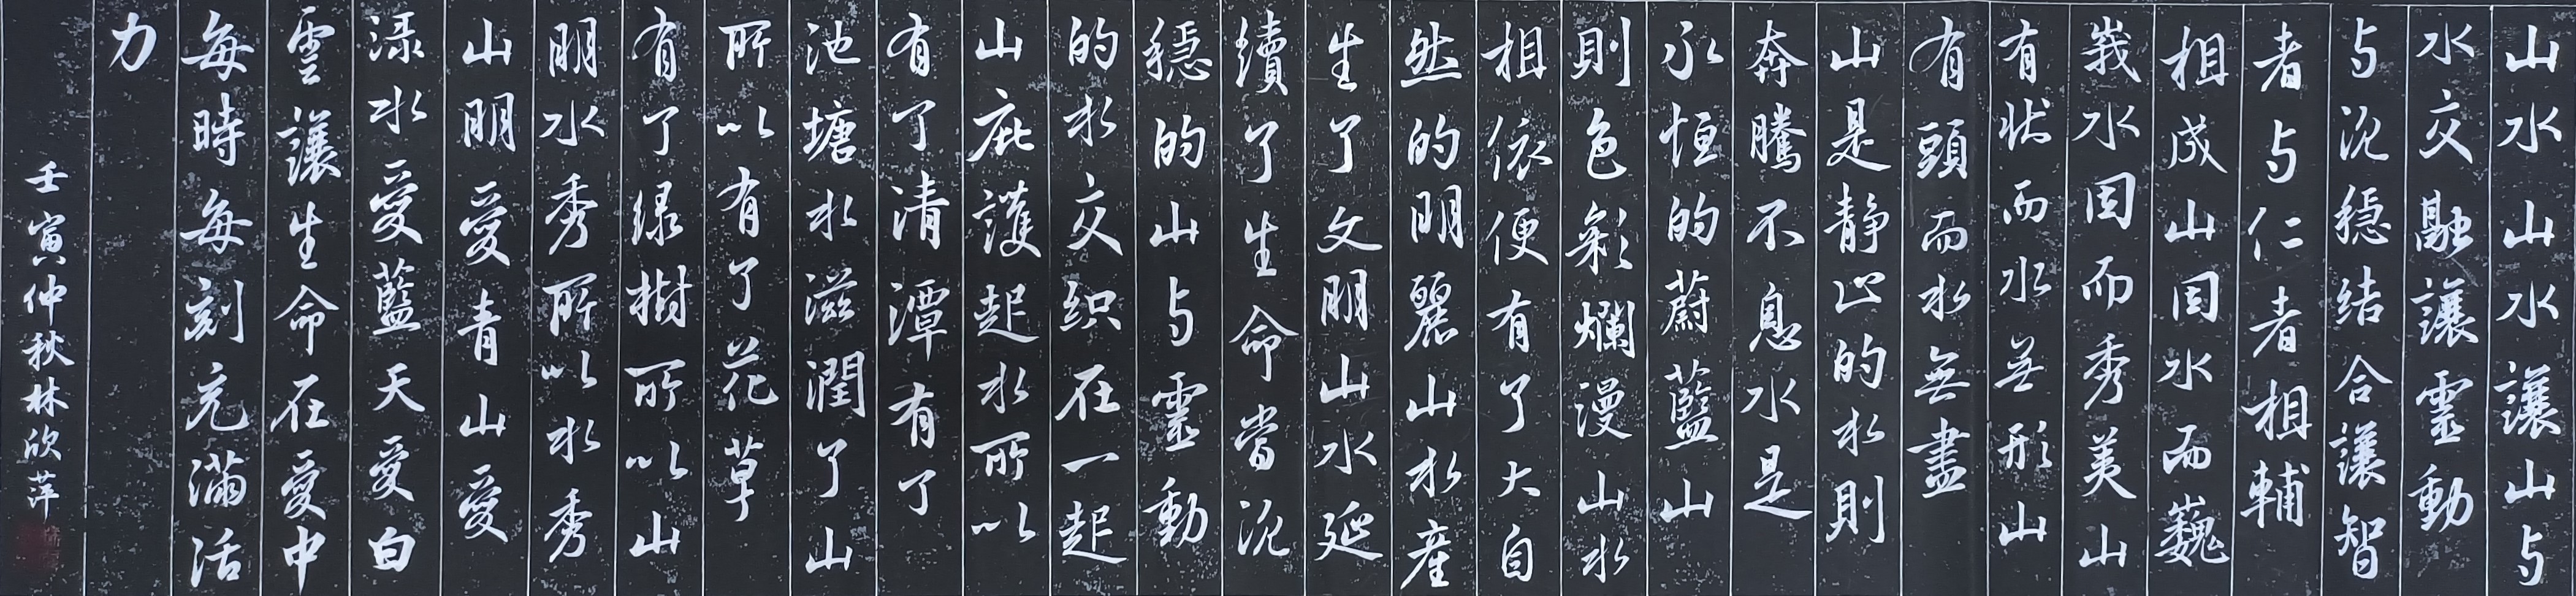 山水山水讓山与
水交融讓靈動
与沉穩结合讓智
者与仁者相輔
相成山因水而巍
峩水因而秀美山
有狀而水无形山
有頭而水無盡
山是靜止的水則
奔騰不息水是
永恒的蔚藍山
則色彩爛漫山水
相依便有了大自
然的明麗山水産
生了文明山水延
續了生命當沉
穩的山与靈動
的水交织在一起
山庇護起水所以
有了清潭有了
池塘水滋潤了山
所以有了花草
有了绿樹所以山
明水秀所以水秀
山明愛青山愛
渌水愛藍天愛白
雲讓生命在愛中
每時每刻充滿活
力
壬寅仲秋林欣萍